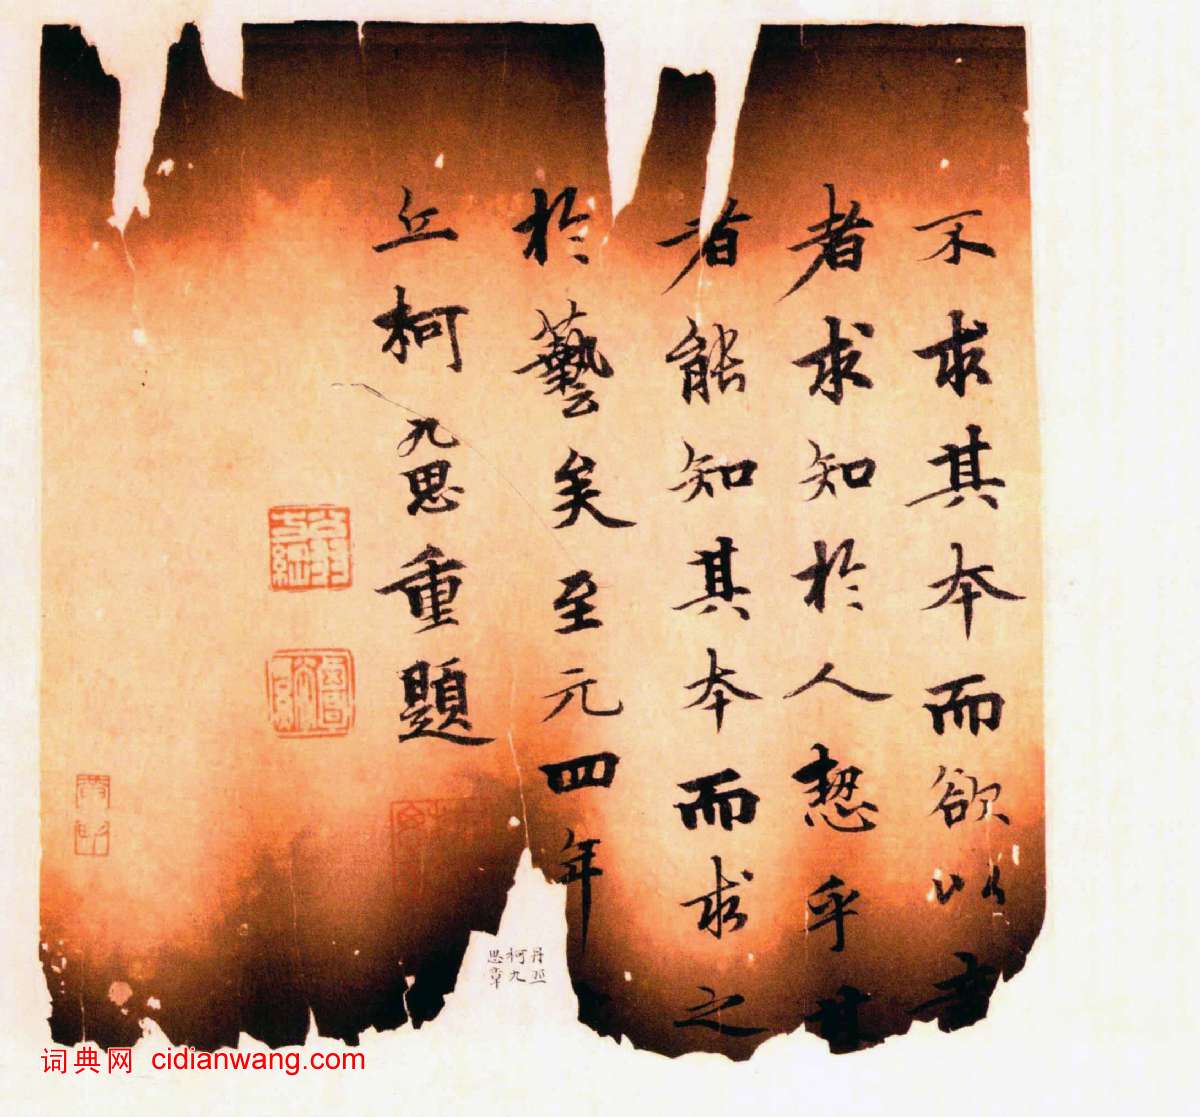 不求其本而欲以
者求知於人愬乎其
者能知其本而求之
於藝矣至元四年
丘柯九思重題
丹丘
柯九
思章
词典网 cidianwang.com